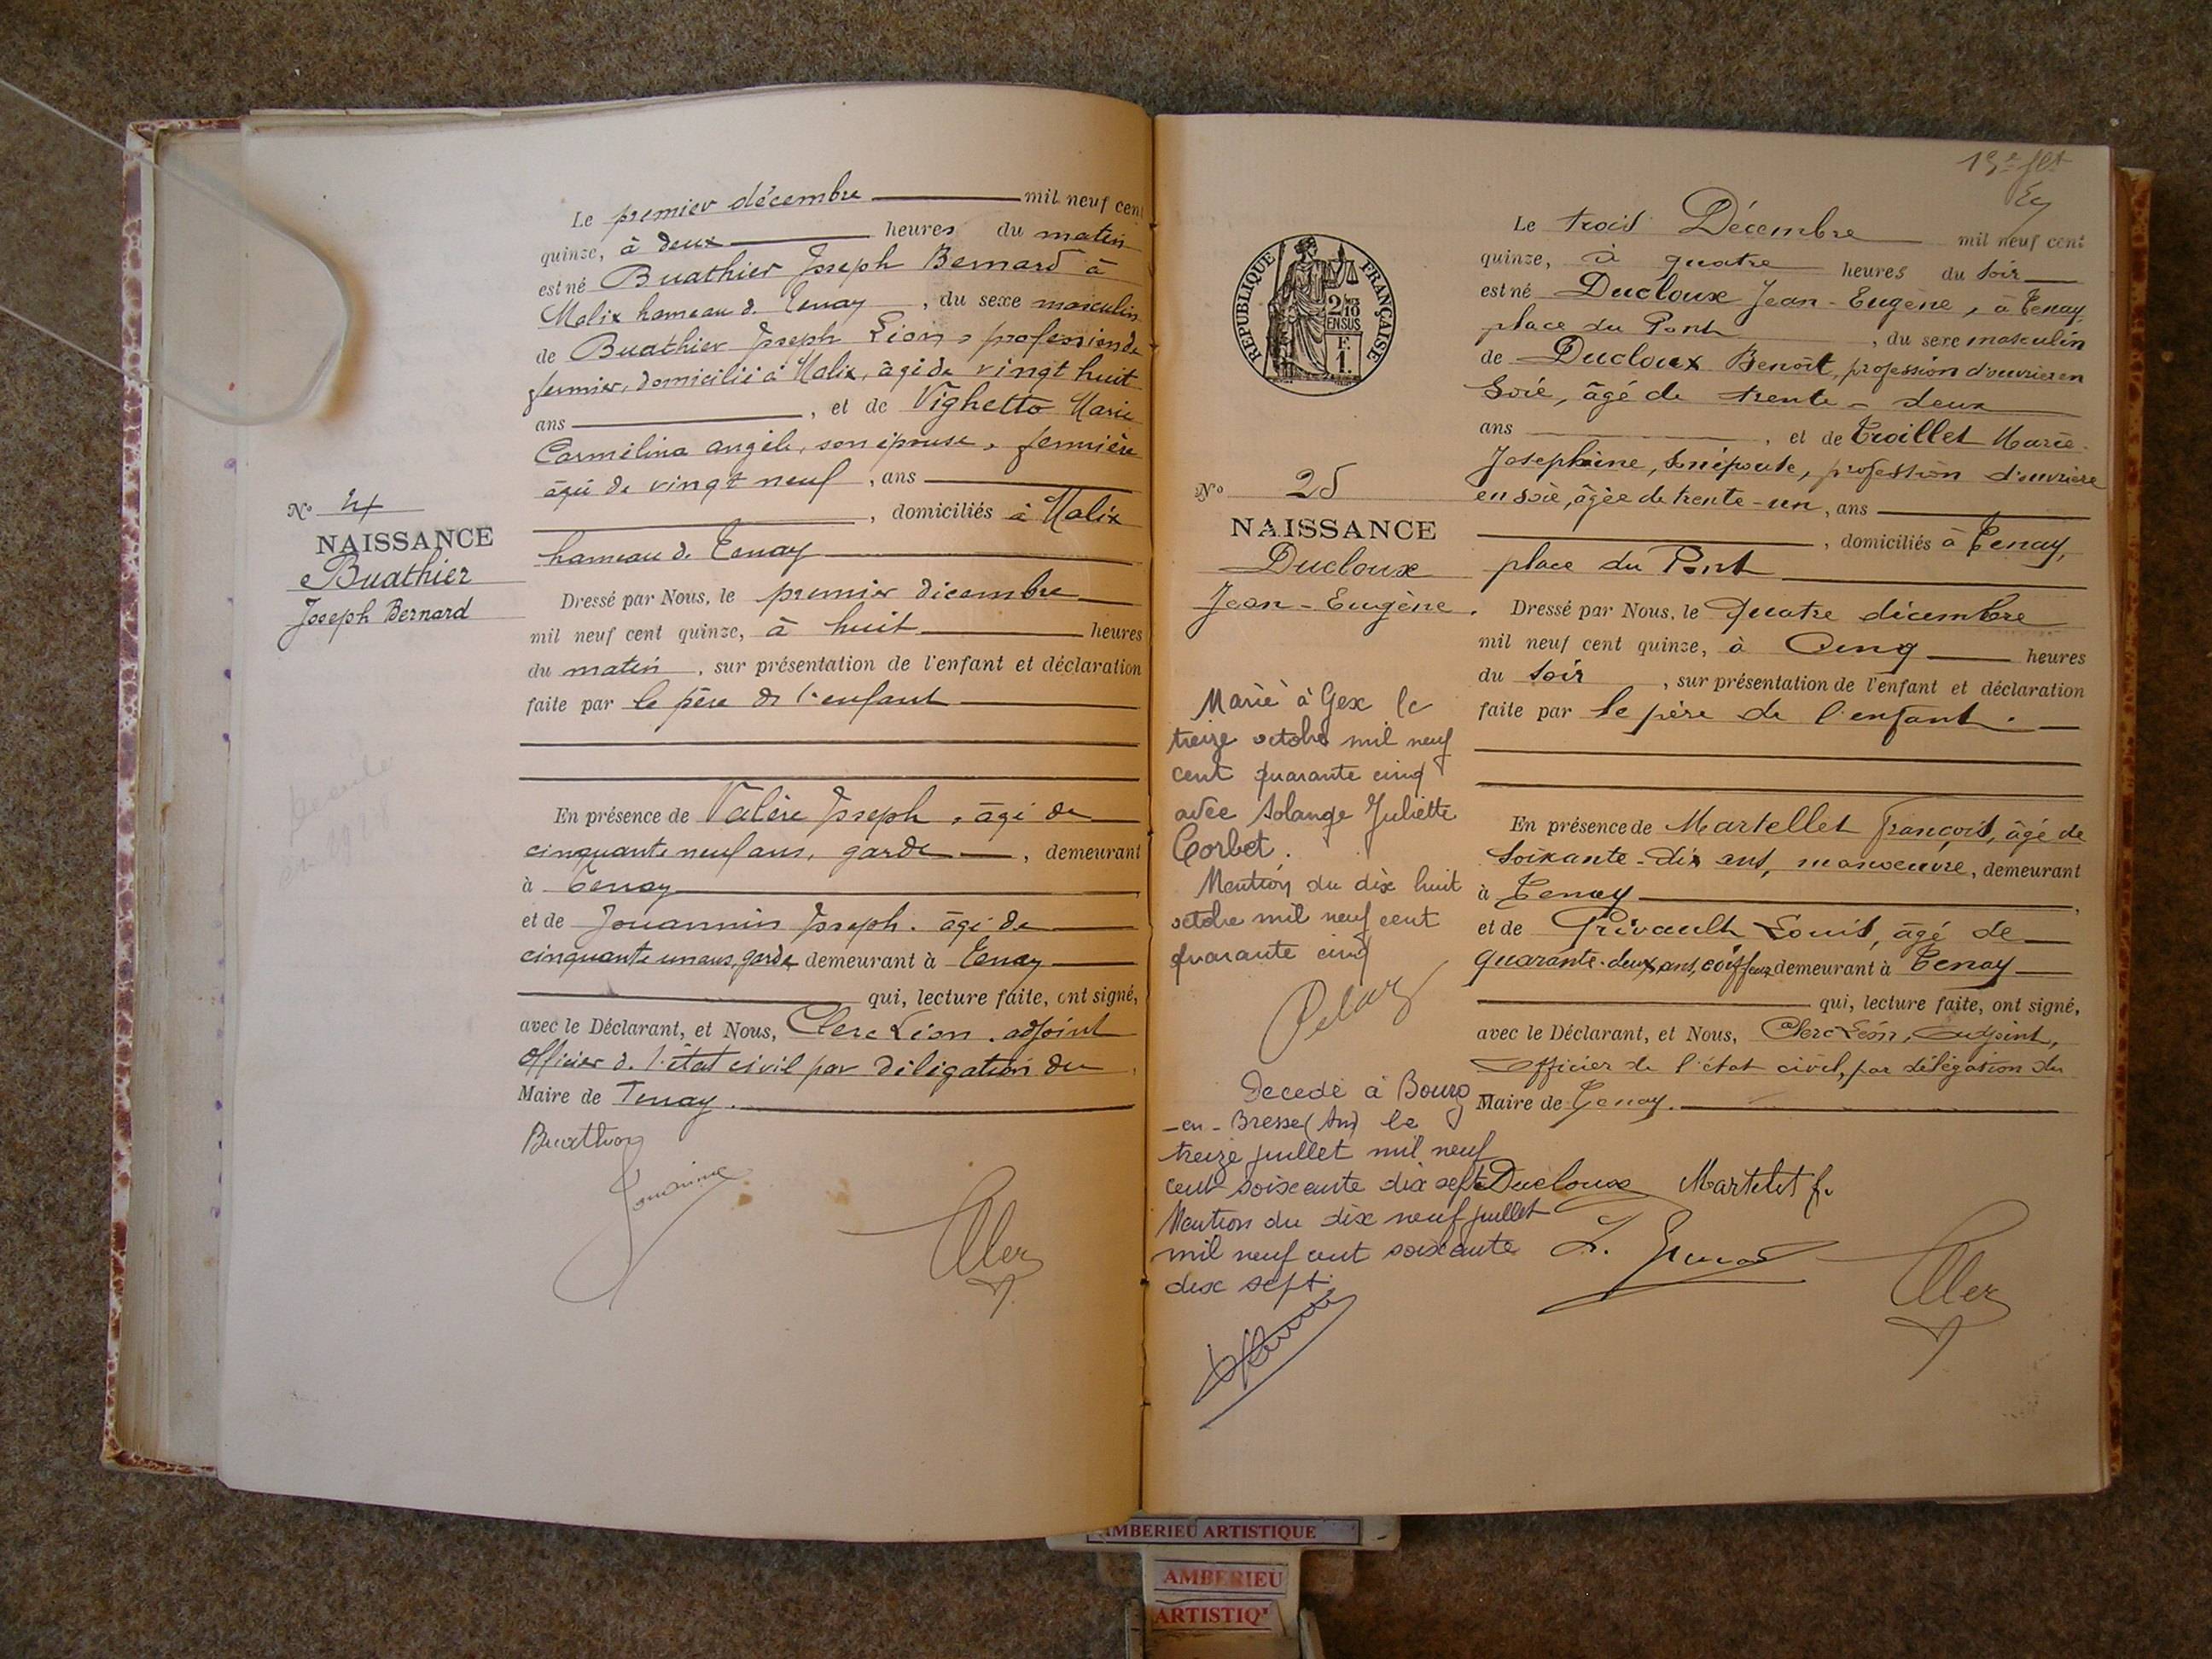 Le premier décembre mil neuf cent
quinze, à deux heures du matin
est né Buathier Joseph Bernard à
Malix hameau de Tenay, du sexe masculin
de Buathier Joseph Léon, profession de
fermier, domicilié à Malix, âgé de vingt huit
ans, et de Vighetto Marie
Carmélina angèle, son épouse, fermière
âgée de vingt neuf, ans
, domiciliés à Malix
hameau de Tenay
Nº 24
NAISSANCE
Buathier
Joseph Bernard
Dressé par Nous, le premier décembre
mil neuf cent quinze, à huit heures
du matin, sur présentation de l'enfant et déclaration
faite par le père de l'enfant
En présence de Valère Joseph, âgé de
cinquante neuf ans, garde, demeurant
à Tenay
et de Jouannin Joseph. âgé de
cinquante un ans, garde demeurant à Tenay
qui, lecture faite, ont signé,
avec le Déclarant, et Nous, Clerc Léon. adjoint
officier de l'état civil par délégation du
Maire de Tenay.
REPUBLIQUE FRANÇAISE
2/10
EN SUS
F.
1.
Le trois Décembre mil neuf cent
quinze, à quatre heures du soir
est né Ducloux Jean-Eugène, à Tenay,
place du Pont, du sexe masculin
de Ducloux Benoît, profession d'ouvrier en
Soie, âgé de trente-deux
ans, et de Troillet Marie-
Joséphine, son épouse, profession d'ouvrière
en soie, âgée de trente-un, ans
, domiciliés à Tenay,
place du Pont
Nº 25
NAISSANCE
Ducloux
Jean-Eugène.
Dressé par Nous, le Quatre décembre
mil neuf cent quinze, à Cinq heures
du soir, sur présentation de l'enfant et déclaration
faite par le père de l'enfant.
En présence de Martellet François, âgé de
soixante-dix ans, manoeuvre, demeurant
à Tenay,
et de Privault Louis, âgé de
quarante-deux ans, coiffeur demeurant à Tenay
qui, lecture faite, ont signé,
avec le Déclarant, et Nous, Clerc Léon, adjoint,
officier de l'état civil, par délégation du
Maire de Tenay.
Marié à Gex le
treize octobre mil neuf
cent quarante cinq
avec Solange Juliette
Corbet.
Mention du dix huit
octobre mil neuf cent
quarante cinq
Décédé à Bourg
-en-Bresse (Ain) le
treize juillet mil neuf
cent soixante dix sept
Mention du dix neuf juillet
mil neuf cent soixante
dix sept.
Ducloux Martelet f.
AMBERIEU ARTISTIQUE
AMBERIEU
ARTISTIQ